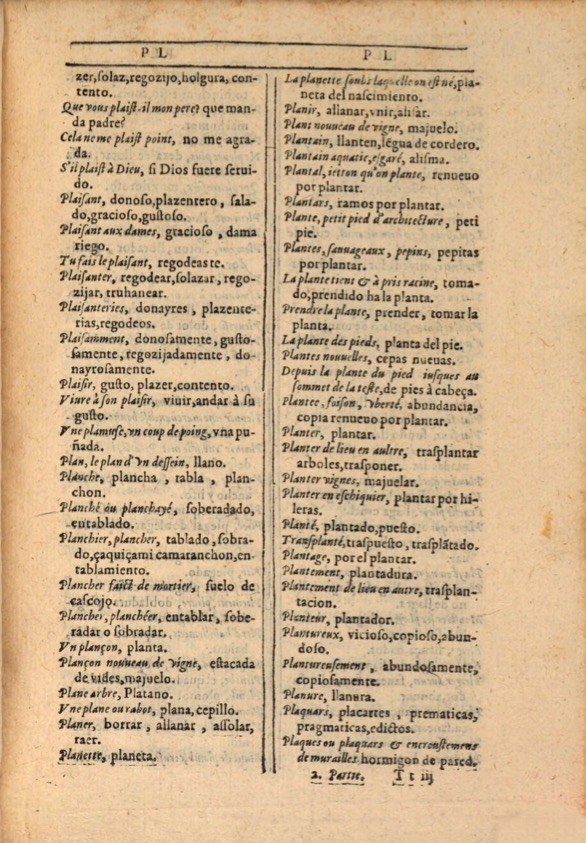 P L
zer,ſolaz,regozijo,holgura, con-
tento.
Que vous plaiſt-il mon pere? que man-
da padre?
Cela ne me plaiſt point, no me agra-
da.
S'il plaiſt à Dieu, ſi Dios fuere ſerui-
do.
Plaiſant, donoſo,plazentero, ſala-
do,gracioſo,guſtoſo.
Plaiſant aux dames, gracioſo, dama
riego.
Tu fais le plaiſant, regodeaste.
Plaiſanter, regodear,ſolazar, rego-
zijar, truhanear.
Plaiſanteries, donayres, plazente-
rias,regodeos.
Plaiſamment, donoſamente, guſto-
ſamente, regozijadamente, do-
nayroſamente.
Plaiſir, guſto, plazer,contento.
Viure à ſon plaiſir, viuir,andar à ſu
guſto.
Vne plamuſe,vn coup de poing, vna pu-
ñada.
Plan, le plan d'vn deſſein, llano.
Planche, plancha, tabla, plan-
chon.
Planché ou planchayé, ſoberadado,
entablado.
Planchier, plancher, tablado, ſobra-
do,çaquiçami camaranchon,en-
tablamiento.
Plancher faict de mortier, ſuelo de
caſcojo.
Plancher, planchéer, entablar, ſobe-
radar o ſobradar.
Vn plançon, planta.
Plançon nouueau de vigne, eſtacada
de vides,majuelo.
Plane arbre, Platano.
Vne plane ou rabot, plana,cepillo.
Planer, borrar, allanar, aſſolar,
raer.
Planette, planeta.
P L
La planette ſoubs laquelle on eſt né,pla-
neta del naſcimiento.
Planir, allanar,vnir,aliſar.
Plans nouueau de vigne, majuelo.
Plantain, llanten,légua de cordero.
Plantain aquatic,eſgaré, aliſma.
Plantal, ietton qu'on plante, renueuo
por plantar.
Plantars, ramos por plantar.
Plante, petit pied d'architecture, peti
pie.
Plantes, ſauuageaux, pepins, pepitas
por plantar.
La plante tient & à pris racine, toma-
do,prendido ha la planta.
Prendre la plante, prender, tomar la
planta.
La plante des pieds, planta del pie.
Plantes nouuelles, cepas nueuas.
Depuis la plante du pied iuſques au
ſommet de la teſte,de pies à cabeça.
Plantee, foiſon, vberté, abundancia,
copia renueuo por plantar.
Planter, plantar.
Planter de lieu en aultre, traſplantar
arboles,traſponer.
Planter vignes, majuelar.
Planter en eſchiquier, plantar por hi-
leras.
Planté, plantado,pueſto.
Tranſplanté,traſpueſto,traſplãtado.
Plantage, por el plantar.
Plantement, plantadura.
Plantement de lieu en autre, traſplan-
tacion.
Planteur, plantador.
Plantureux, vicioſo,copioſo,abun-
doſo.
Plantureuſement, abundoſamente,
copioſamente.
Planure, llanura.
Plaquars, placartes, prematicas,
pragmaticas,edictos.
Plaques ou plaquars & encrouſtemens
de murailles hormigon de pared.
2. Partie. T t iij